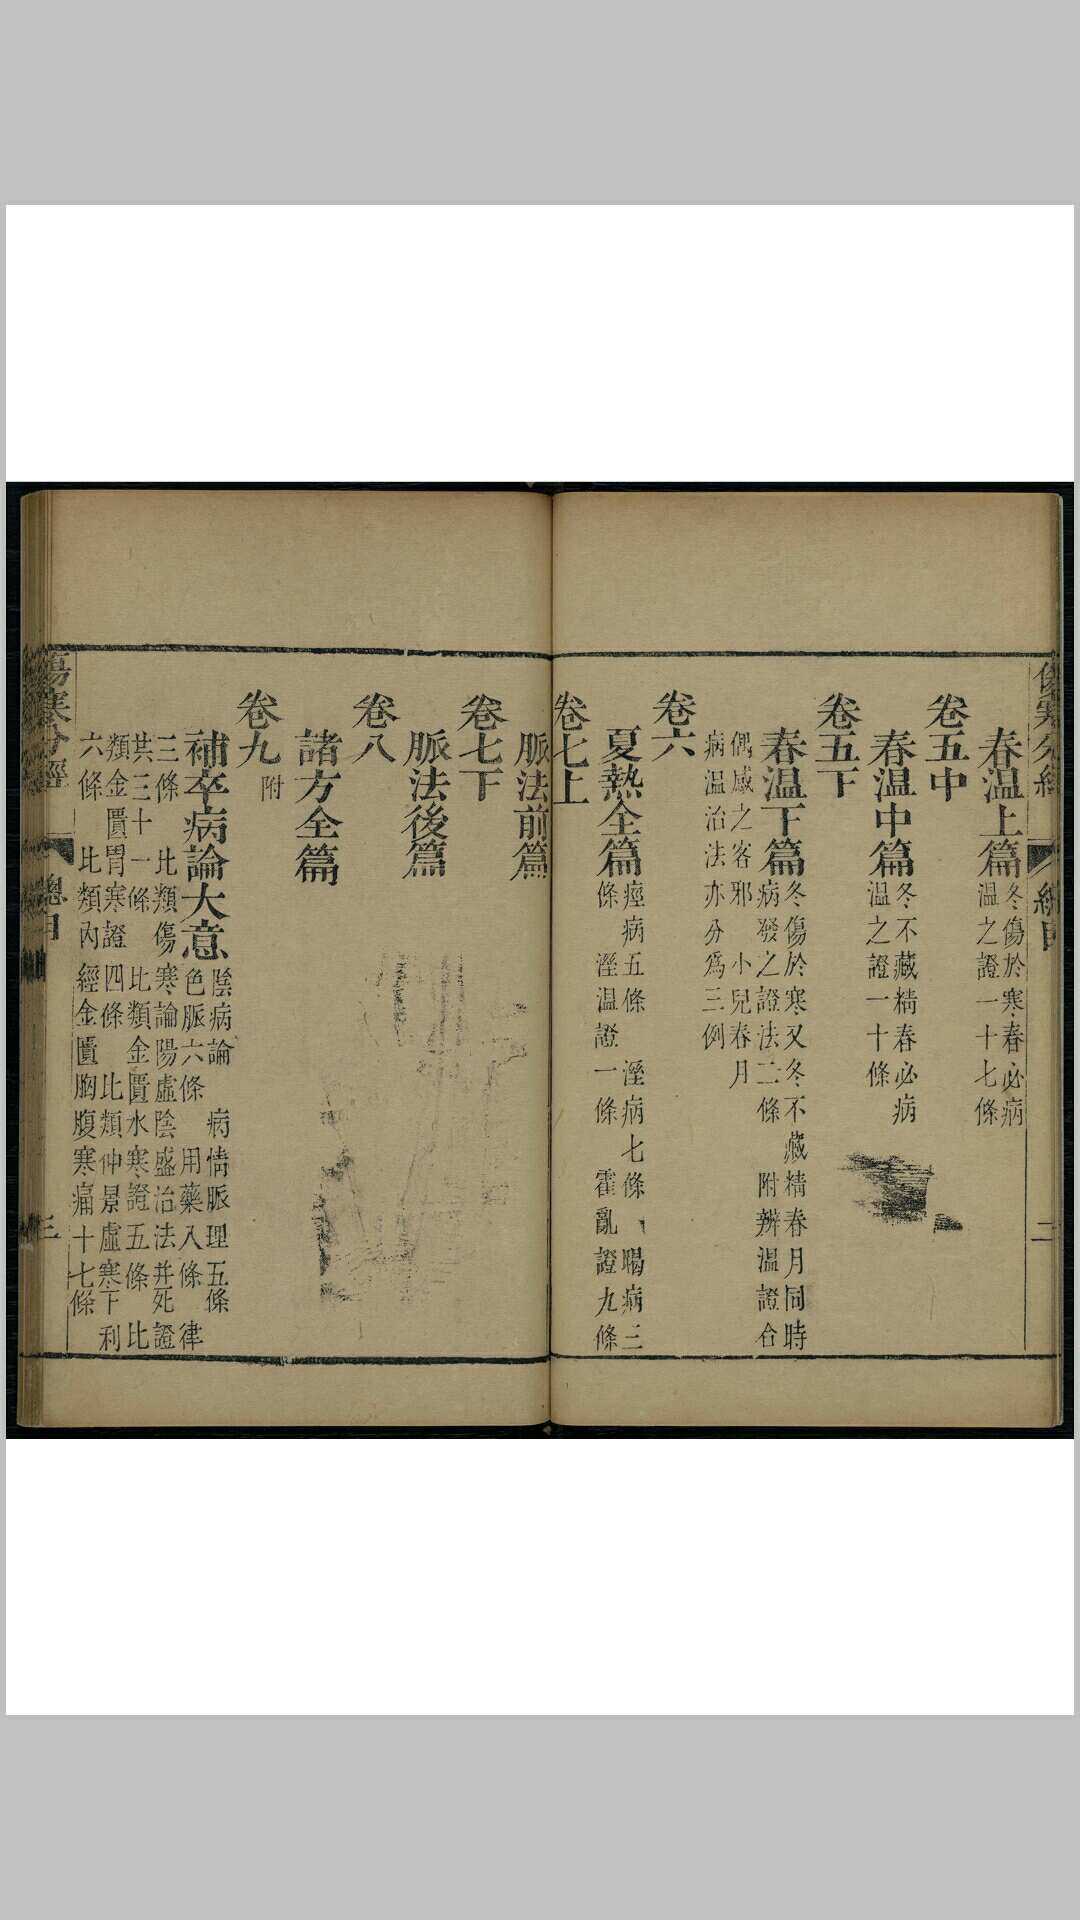 春温上篇
冬傷於寒春必病
温之證一十七條
卷五中
春温中篇
冬不藏精春必病
温之證一十條
卷五下
春温下篇
冬傷於寒又冬不藏精春月同時
病發之證法二條　附辨温證合
偶感之客邪　小兒春月
病温治法亦分爲三例
卷六
夏熱全篇
痙病五條　溼病七條　暍病三
條　溼温證一條　霍亂證九條
卷七上
脈法前篇
卷七下
脈法後篇
卷八
諸方全篇
卷九 附
補卒病論大意
陰病論　病情脈理五條
色脈六條　用藥八條　律
三條　比類傷寒論陽虛陰盛治法并死證
共三十一條　比類金匱水寒證五條　比
類金匱胃寒證四條　比類仲景虛寒下利
六條　比類內經金匱胸腹寒痛十七條
傷寒分經
總目
三